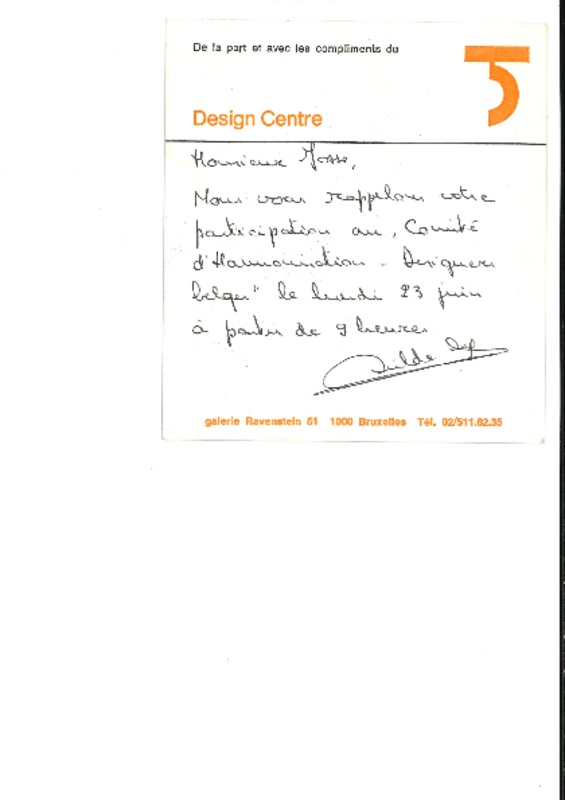 De la part et avec les compliments du
Design Centre
Monsieur Josse,
Nous vous rappelons votre
participation au "Comité
d'Harmonisation - Designers
belges" le lundi 23 juin
à partir de 9 heures
Hilde
galerie Ravenstein 51 1000 Bruxelles Tél. 02/511.62.35